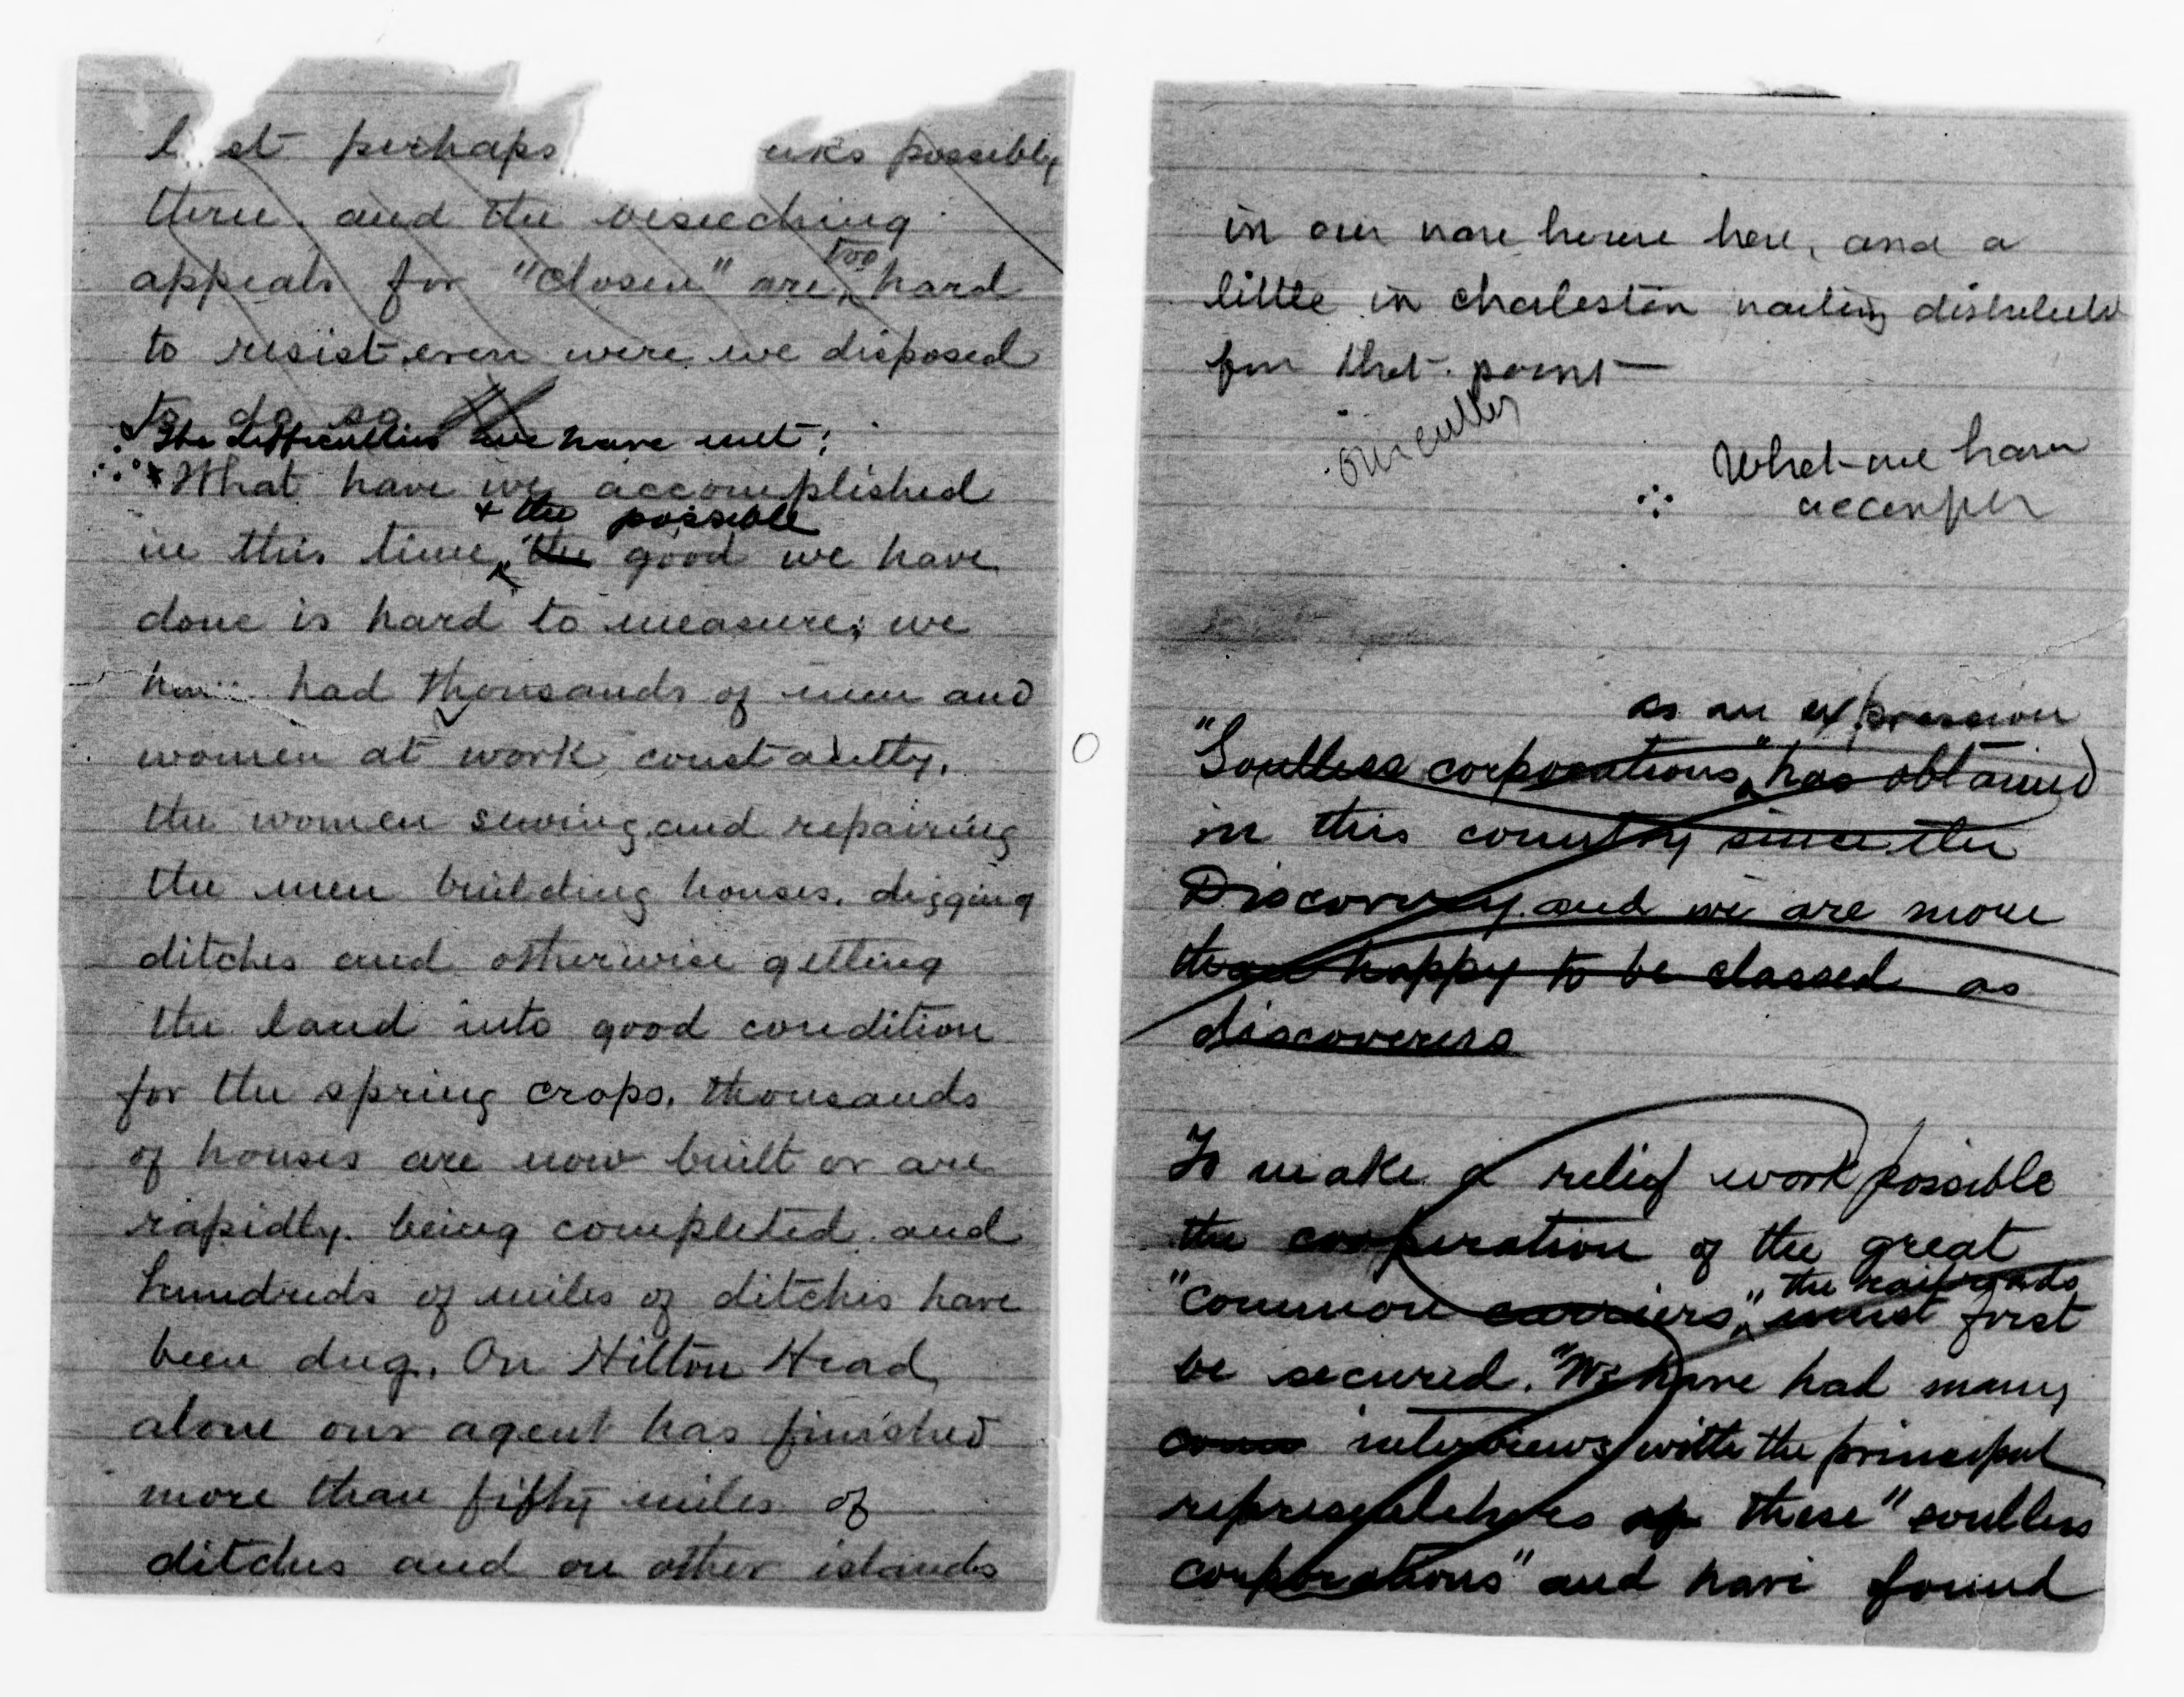 perhaps possibly
there. and the beseeching
too
appeals for "closen" are hard
to resist even were we disposed
to do so
The difficulties we have met:
What have we accomplished
+ the possible
in this time, the good we have
done is hard to measure; we
had thousands of men and
women at work constantly,
the women sewing and repairing
the men building houses, digging
ditches and otherwise getting
the land into good condition
for the spring crops. thousands
of houses are now built or are
rapidly being completed and
hundreds of miles of ditches have
been dug. On Hilton Head
alone our agent has finished
more than fifty miles of
ditches and on other islands
in our ware house here, and a
little in Charleston waiting
for that point —
What we have
as an expression
"Soulless corporations" has obtained
in this country since the
Discovery. and we are more
than happy to be classed as
discoverers
To make a relief work possible
the cooperation of the great
the railroads
"common carriers", must first
be secured. "We have had many
interviews with the principal
representatives of these "soulless
corporations" and have found